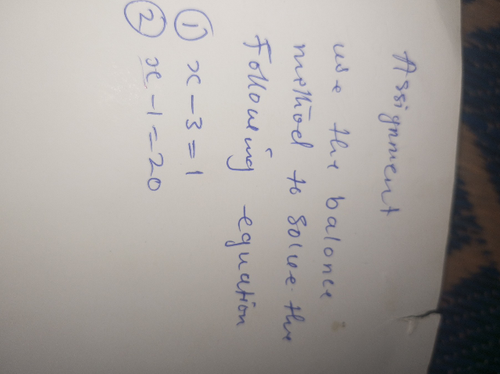 Assignment
use the balance
method to solve the
Following equation
① x - 3 = 1
② x - 1 = 20